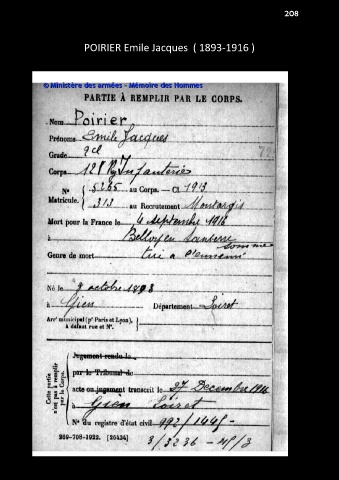 208
POIRIER Emile Jacques ( 1893-1916 )
© Ministère des armées - Mémoire des Hommes
PARTIE À REMPLIR PAR LE CORPS.
Nom Poirier
Prénoms Emile Jacques
Grade 2cl
Corps 128 Rg Infanterie
N° 5265 au Corps. — Cl 1913
Matricule. 313 au Recrutement Montargis
Mort pour la France le 4 septembre 1916
à Belloy en Santerre
Somme
Genre de mort tué à l'ennemi
Né le 9 octobre 1893
à Gien Département Loiret
Arrt municipal (pr Paris et Lyon),
à défaut rue et N°.
Cette partie
n'est pas à remplir
par le Corps.
Jugement rendu le
par le Tribunal de
acte ou jugement transcrit le 27 Decembre 1916
à Gien Loiret
N° du registre d'état civil 992/1445
269-708-1922. [26434]